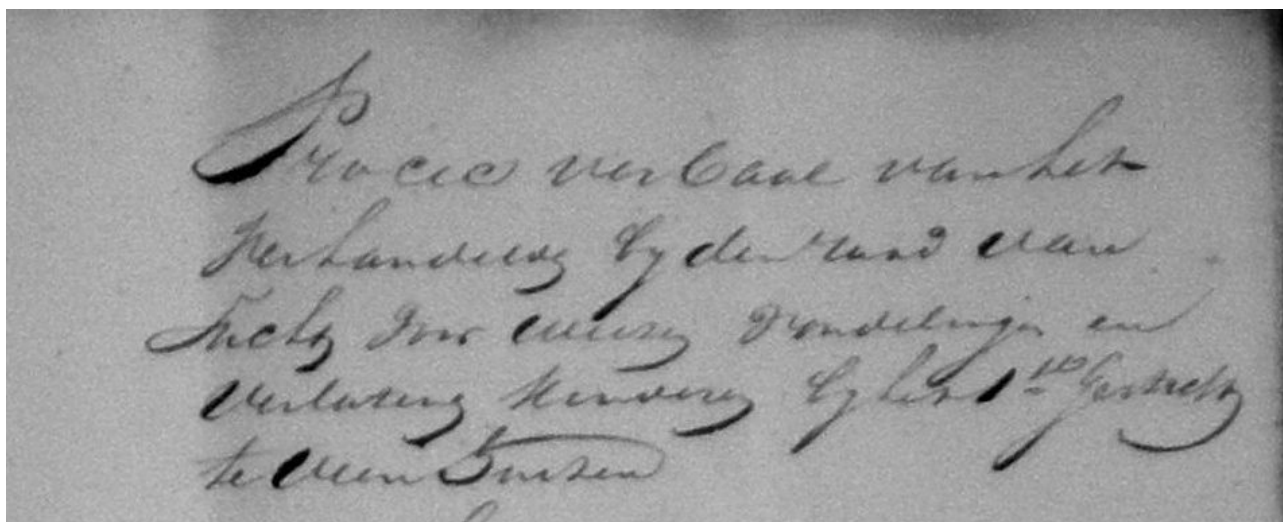 Proces verbaal van het
Verhandelde by den raad van
Tucht voor weesen vondelingen en
Verlatene Kinderen by het 1ste Gesticht
te Veenhuisen